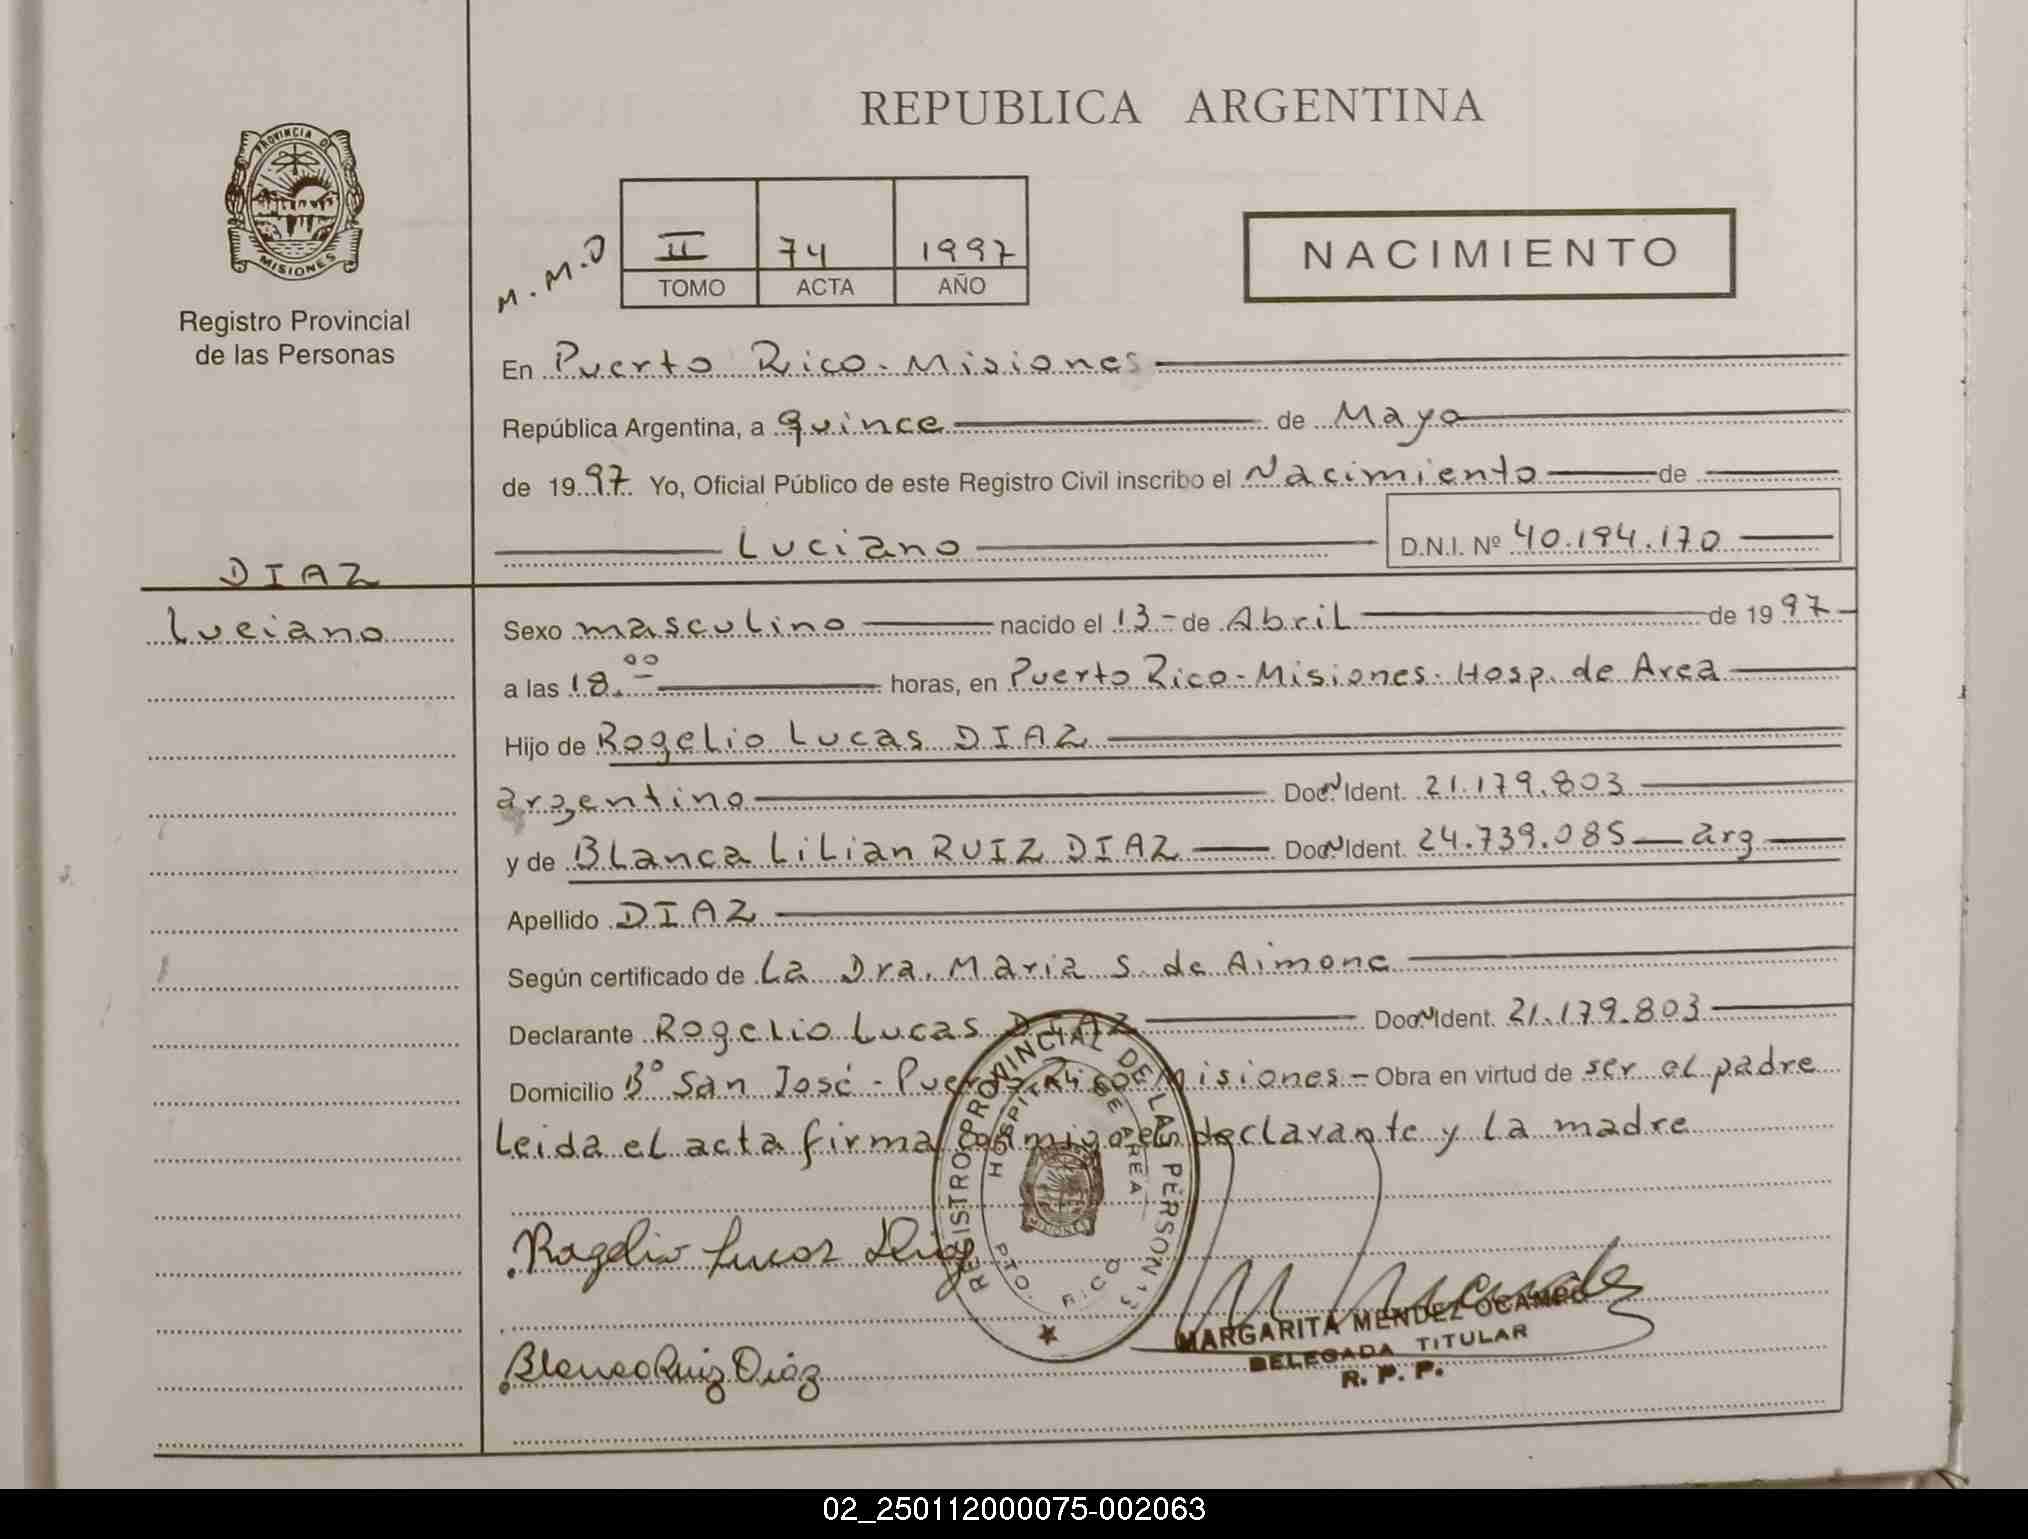 REPUBLICA ARGENTINA
PROVINCIA DE
MISIONES
Registro Provincial
de las Personas
M.M.O
II 74 1997
TOMO ACTA AÑO
NACIMIENTO
En Puerto Rico - Misiones
República Argentina, a quince de Mayo
de 1997 Yo, Oficial Público de este Registro Civil inscribo el Nacimiento de
Luciano D.N.I. Nº 40.194.170
DIAZ
Luciano
Sexo masculino nacido el 13 - de Abril de 1997
a las 18.00 horas, en Puerto Rico - Misiones - Hosp. de Area
Hijo de Rogelio Lucas DIAZ
argentino Doc. N Ident. 21.179.803
y de BLanca LiLian RUIZ DIAZ Doc. N Ident. 24.739.085 arg
Apellido DIAZ
Según certificado de La Dra. Maria S. de Aimone
Declarante Rogelio Lucas DIAZ Doc. N Ident. 21.179.803
Domicilio Bº San José - Puerto Rico Misiones - Obra en virtud de ser el padre
Leida el acta firma conmigo el declarante y La madre
REGISTRO PROVINCIAL DE LAS PERSONAS
HOSPITAL DE AREA
PTO. RICO
MISIONES
Rogelio Lucas Diaz
MARGARITA MENDEZ OCAMPO
DELEGADA TITULAR
R. P. P.
Blanca Ruiz Diaz
02_250112000075-002063